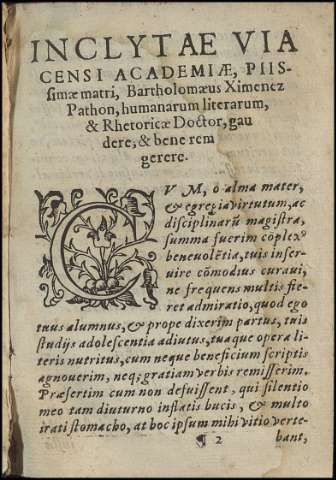 INCLYTAE VIA
CENSI ACADEMIÆ, PIIS-
simæ matri, Bartholomæus Ximenez
Pathon, humanarum literarum,
& Rhetoricæ Doctor, gau
dere, & bene rem
gerere.
CVM, o alma mater,
& egregia virtutum, ac
disciplinarũ magistra,
summa fuerim cõplexꝰ
beneuolẽtia, tuis inser-
uire cõmodius curaui,
ne frequens multis fie-
ret admiratio, quod ego
tuus alumnus, & prope dixerim partus, tuis
studijs adolescentia adiutus, tua que opera li-
teris nutritus, cum neque beneficium scriptis
agnouerim, neq; gratiam verbis remisserim.
Præsertim cum non defuissent, qui silentio
meo tam diuturno inflatis bucis, & multo
irati stomacho, at hoc ipsum mihi vitio verte-
¶ 2 bant,